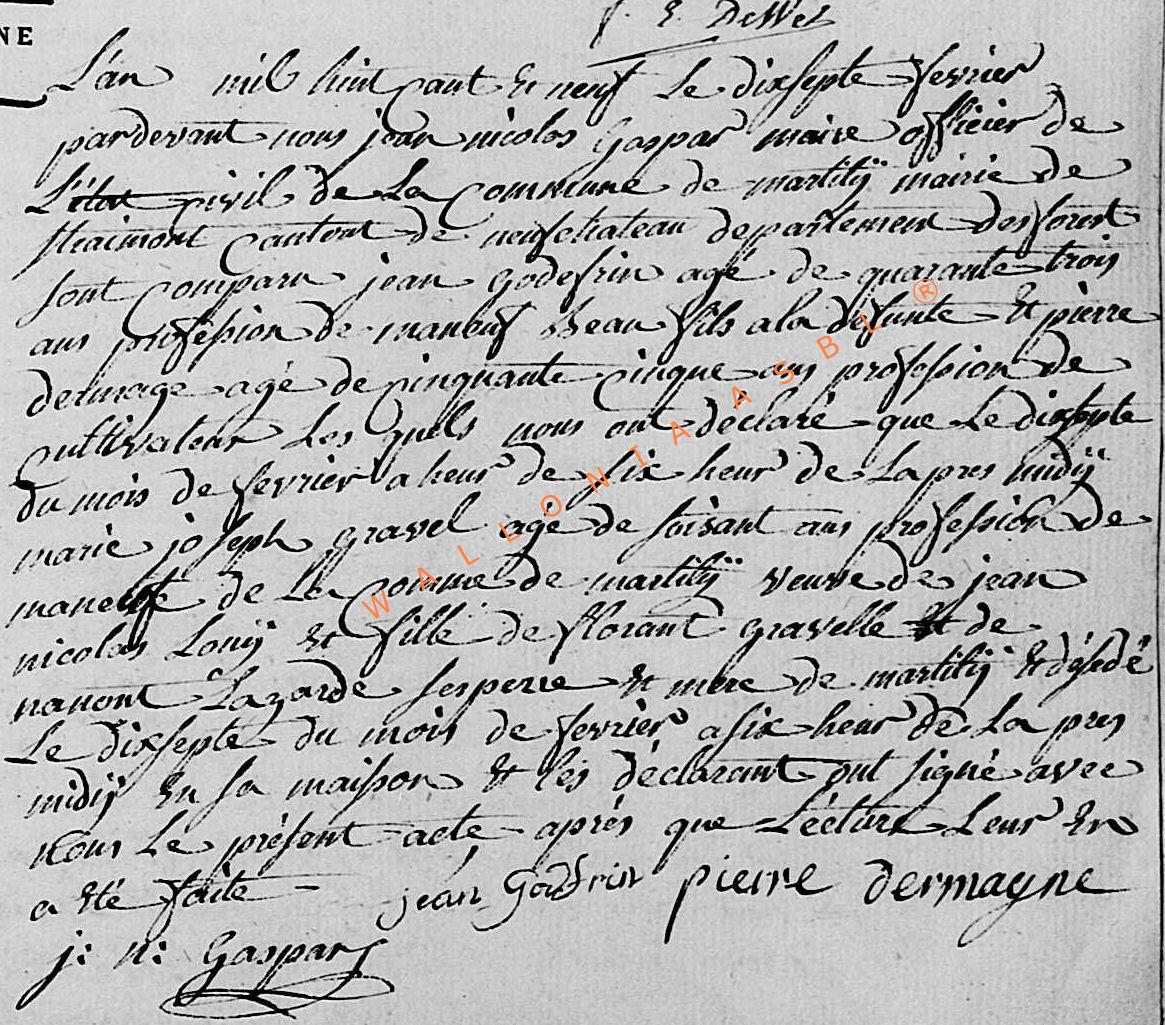 NE
L'an mil huit cant et neuf Le dixsepte fevrier
pardevant nous jean nicolas Gaspar maire officier de
L'état civil de La Commune de martilÿ mairie de
Straimont Canton de neufchateau departement desforest
sont comparu jean Godefrin agé de quarante trois
ans profession de maneuf Beau fils a la défunte Et pierre
dermage agé de cinquante cinque ans profession de
cultivateur Les quels nous ont déclaré que Le dixsepte
du mois de fevrier a heur de six heur de La pres midÿ
marie joseph gravel agé de soisant ans profession de
maneuf de La comme de martilÿ veuve de jean
nicolas Louÿ Et fille de florant gravelle Et de
nanont Lagarde ses perre Et mere de martilÿ Et désedé
Le dixsepte du mois de fevrier a six heur de La pres
midÿ En sa maisson Et les déclarant ont signé avec
nous Le présent acte aprés que Lécture Leur En
a Eté faite jean Godfrin pierre dermagne
j: n: Gaspar
WALLONIA ASBL ®